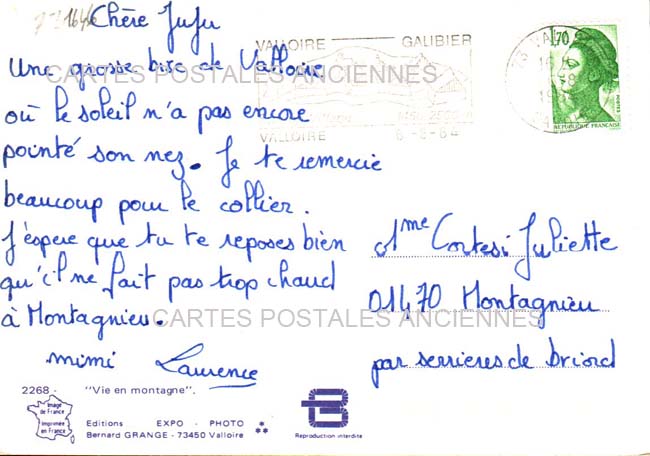 Chère Juju
Une grosse bise de Valloire
où le soleil n'a pas encore
pointé son nez. Je te remercie
beaucoup pour le collier.
J'espère que tu te reposes bien
qu'il ne fait pas trop chaud
à Montagnieu.
mimi Laurence
VALLOIRE GALIBIER
VALLOIRE
1,70
POSTES
REPUBLIQUE FRANÇAISE
Mme Cortesi Juliette
01470 Montagnieu
par serrieres de briord
CARTES POSTALES ANCIENNES
CARTES POSTALES ANCIENNES
2268 - "Vie en montagne".
Image
de France
Imprimée
en France
Editions EXPO - PHOTO
Bernard GRANGE - 73450 Valloire
Reproduction interdite